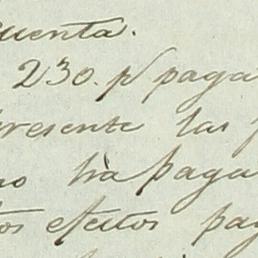 cuenta.
230. p paga
presente las
no hà paga
tos efectos pag